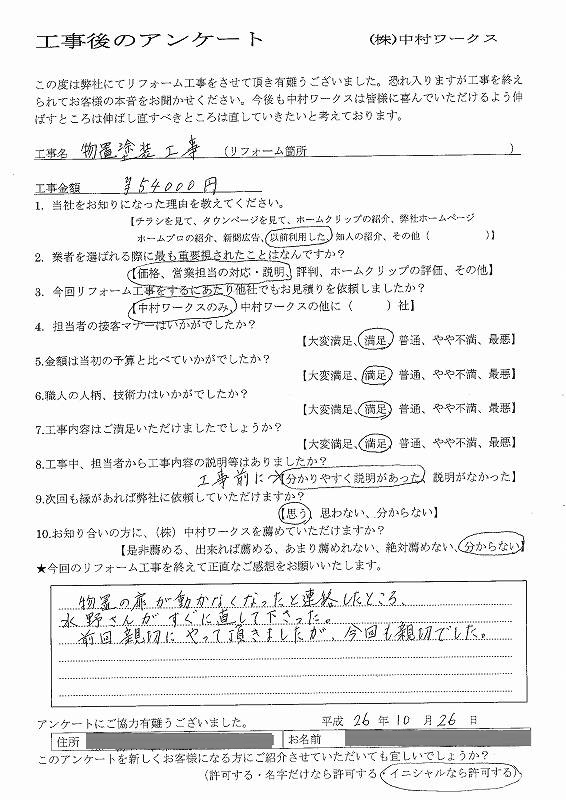 工事後のアンケート　(株)中村ワークス
この度は弊社にてリフォーム工事をさせて頂き有難うございました。恐れ入りますが工事を終え
られてお客様の本音をお聞かせください。今後も中村ワークスは皆様に喜んでいただけるよう伸
ばすところは伸ばし直すべきところは直していきたいと考えております。
工事名　物置塗装工事　(リフォーム箇所　)
工事金額　¥54000円
1．当社をお知りになった理由を教えてください。
【チラシを見て、タウンページを見て、ホームクリップの紹介、弊社ホームページ
ホームプロの紹介、新聞広告、以前利用した、知人の紹介、その他（　）】
2．業者を選ばれる際に最も重要視されたことはなんですか？
【価格、営業担当の対応・説明、評判、ホームクリップの評価、その他】
3．今回リフォーム工事をするにあたり他社でもお見積りを依頼しましたか？
【中村ワークスのみ、中村ワークスの他に（　）社】
4．担当者の接客マナーはいかがでしたか？
【大変満足、満足、普通、やや不満、最悪】
5.金額は当初の予算と比べていかがでしたか？
【大変満足、満足、普通、やや不満、最悪】
6.職人の人柄、技術力はいかがでしたか？
【大変満足、満足、普通、やや不満、最悪】
7.工事内容はご満足いただけましたでしょうか？
【大変満足、満足、普通、やや不満、最悪】
8.工事中、担当者から工事内容の説明等はありましたか？
工事前に　【分かりやすく説明があった、説明がなかった】
9.次回も縁があれば弊社に依頼していただけますか？
【思う、思わない、分からない】
10.お知り合いの方に、（株）中村ワークスを薦めていただけますか？
【是非薦める、出来れば薦める、あまり薦めれない、絶対薦めない、分からない】
★今回のリフォーム工事を終えて正直なご感想をお願いいたします。
物置の扉が動かなくなったと連絡したところ、
水野さんがすぐに直して下さった。
前回親切にやって頂きましたが、今回も親切でした。
アンケートにご協力有難うございました。　平成 26年 10月 26日
住所　お名前
このアンケートを新しくお客様になる方にご紹介させていただいても宜しいでしょうか？
（許可する・名字だけなら許可する・イニシャルなら許可する）